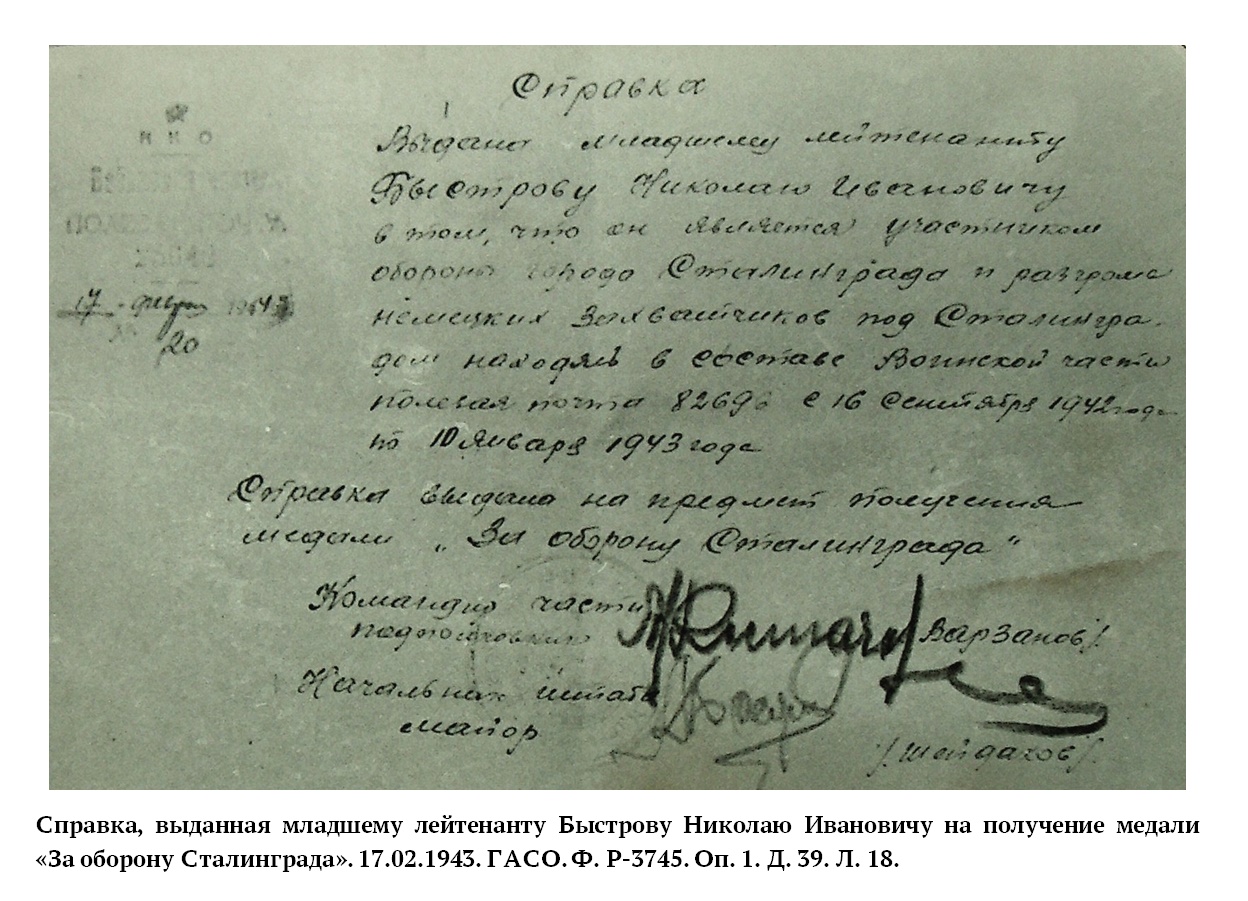 Справка
Н К О
17 февраля 1943
20
Выдана младшему лейтенанту
Быстрову Николаю Ивановичу
в том, что он является участником
обороны города Сталинграда и разгрома
немецких захватчиков под Сталингра-
дом находясь в составе Воинской части
полевая почта с 16 Сентября 1942 года
по 10 Января 1943 года
Справка выдана на предмет получения
медали „За оборону Сталинграда"
Командир части
подполковник /Варзанов/.
Начальник штаба
майор
/Шейдахов/.
Справка, выданная младшему лейтенанту Быстрову Николаю Ивановичу на получение медали
«За оборону Сталинграда». 17.02.1943. ГАСО. Ф. Р-3745. Оп. 1. Д. 39. Л. 18.